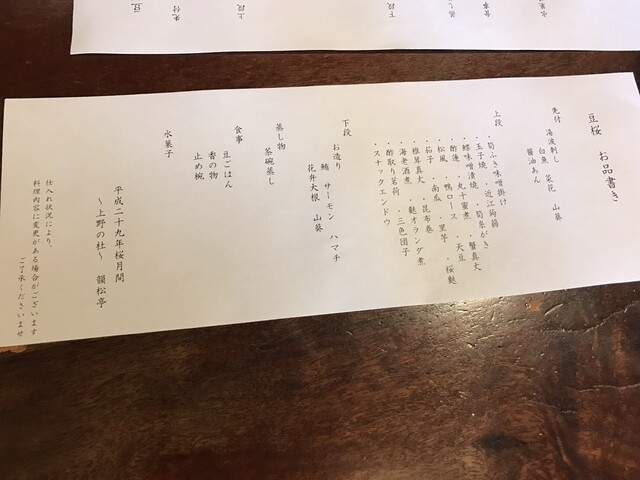 豆桜　お品書き
先付　湯波刺し　山葵
白魚　菜花
醤油あん
上段
・筍ふき味噌掛け
・玉子焼　・近江蒟蒻　・蟹真丈
・鰈味噌漬焼　・筍糸がき
・酢蓮　・丸十蜜煮　・天豆
・松風　・鴨ロース　・桜麩
・茄子　・南瓜　・里芋
・椎茸真丈　・昆布巻
・海老酒煮　・麩オランダ煮
・酢取り茗荷　・三色団子
・スナックエンドウ
下段
お造り
鮪　サーモン　ハマチ
花弁大根　山葵
蒸し物
茶碗蒸し
食事
豆ごはん
香の物
止め椀
水菓子
平成二十九年桜月間
～上野の杜～　韻松亭
仕入れ状況により、
料理内容に変更がある場合がございます
ご了承くださいませ
豆
先付
上段
下段
蒸し
食事
水菓